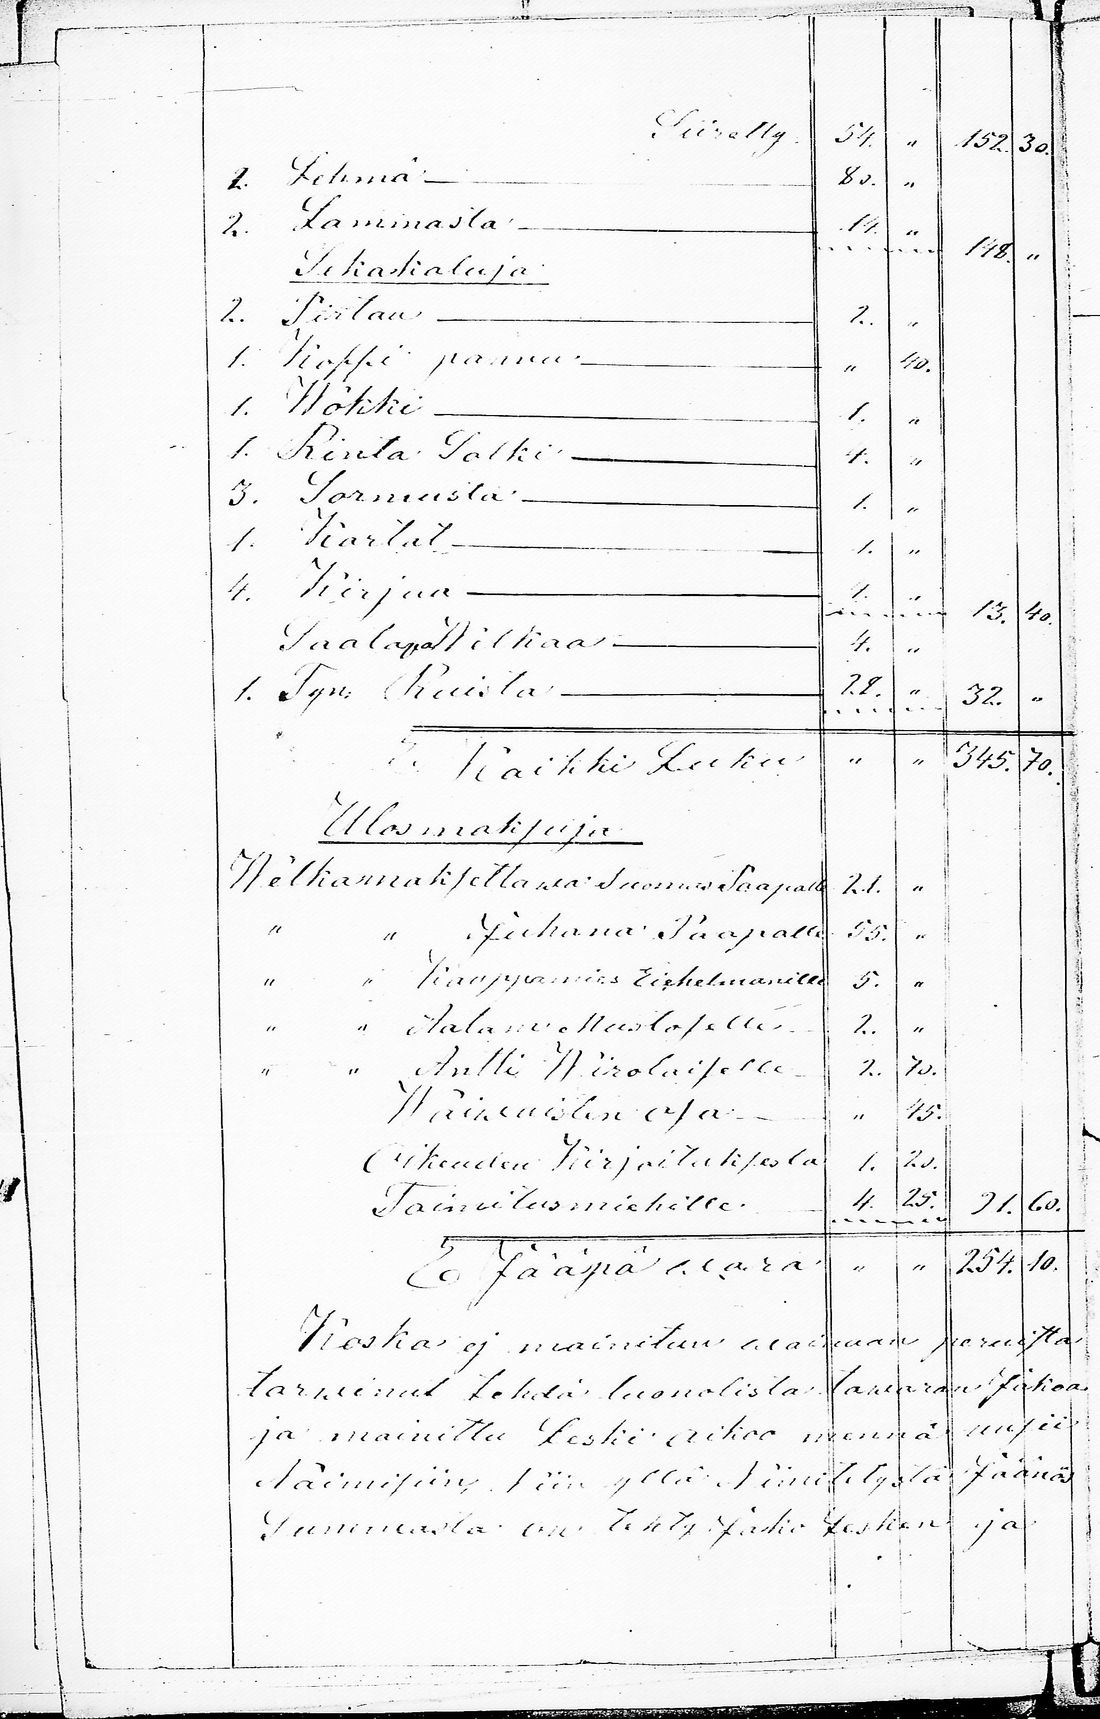 Siiretty. 54. " 152. 30.
2. Lehmä 80. "
2. Lammasta 14. " 148. "
Sekakaluja
2. Pirtau 2. "
1. Koffi pannu " 40.
1. Wökki 1. "
1. Rinta Solki 4. "
3. Sormusta 1. "
1. Kartat 1. "
4. Kirjua 4. " 13. 40.
Wilkaa 4. "
1. Tyn: Ruista 28. " 32. "
Kaikki Luku " " 345. 70.
Ulosmaksuja
Wélkamaksettawa Paapalle 21. "
" " Juhana Paapalle 55. "
" " Kauppamies Eichelmanille 5. "
" " Aatami Mustoselle 2. "
" " Antti Wirolaiselle 2. 70.
Waiwaisten osa " 45.
Oikeuden Kirjoituksesta 1. 20.
Toimitusmiehille 4. 25. 91. 60.
Jääpä wara " " 254. 10.
Koska ej mainitun waiwan peruista
tarwinut tehdä luonolista tawaran Jakoa
ja mainittu Leski aikoo mennä uusii
Naimisiin, Niin yllä Nimitetystä Jäänös
Summasta on tehty Jako Lesken ja